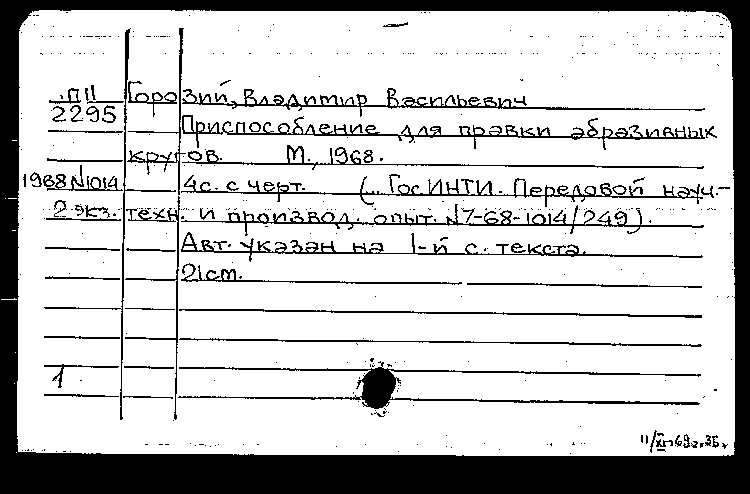 П11 Горозий, Владимир Васильевич
2295 Приспособление для правки абразивных
кругов. М., 1968.
1968 N1014 4с. с черт. (... ГосИНТИ. Передовой науч.-
2 экз. техн. и производ. опыт. N7-68-1014/249).
Авт. указан на 1-й с. текста.
21см.
1